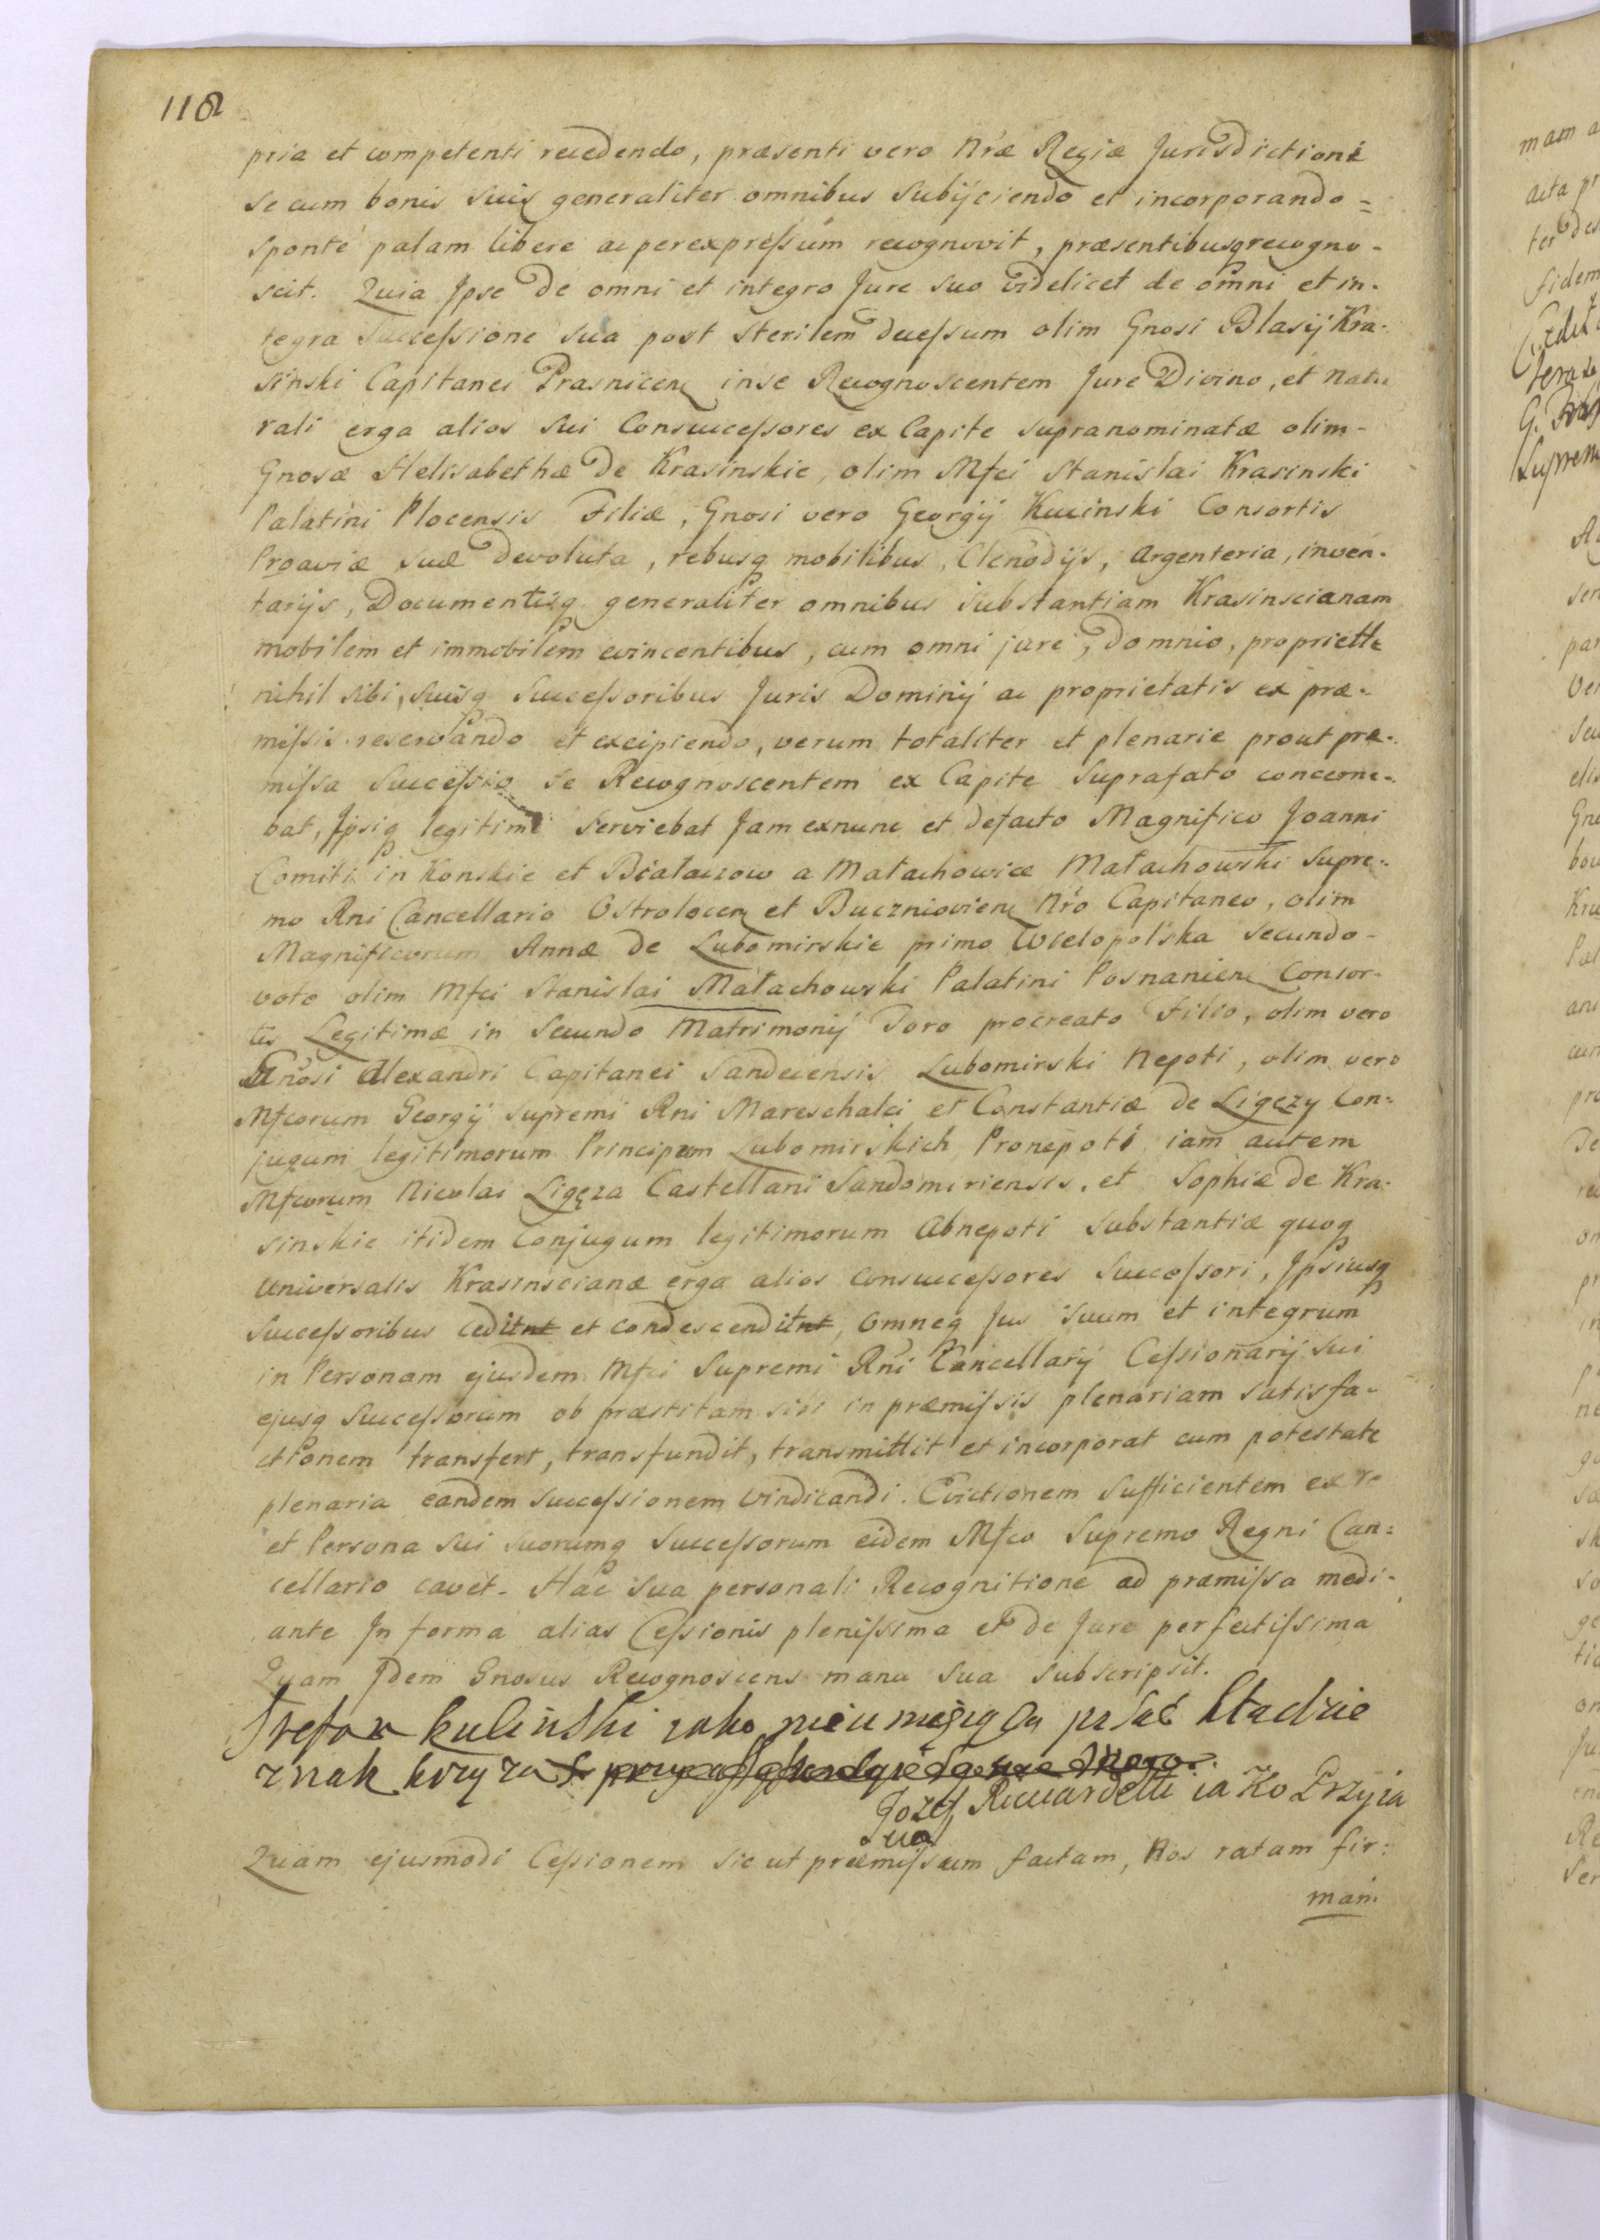 118
pria et competenti recedendo, præsenti vero Nræ Regiæ Jurisdictioni
se cum bonis suis generaliter omnibus subijciendo et incorporando =
sponte palam libere ac per expreſsum recognovit, præsentibusq recogno -
scit. Quia Ipse de omni et integro Jure suo videlicet de omni et in.
tegra succeſsione sua post sterilem deceſsum olim Gnosi Blasij Kra-
sinski Capitanei Prasnicen in se Recognoscentem Jure Divino, et natu
rali erga alios sui Consucceſsores ex Capite supranominatæ olim -
Gnosæ Helisabethæ de Krasinskie, olim Mfci Stanislai Krasinski
Palatini Plocensis Filiæ, Gnosi vero Georgij Kucinski Consortis
Proaviæ suæ devoluta, rebusq mobilibus, Clenodijs, Argenteria, inven-
tarijs, Documentisq generaliter omnibus substantiam Krasinscianam
mobilem et immobilem evincentibus, cum omni jure, domnio, propriette
nihil sibi, suisq Succeſsoribus Juris Dominij ac proprietatis ex præ-
miſsis reservando et excipiendo, verum totaliter et plenarie prout præ-
miſsa Succeſsio se Recognoscentem ex Capite suprafato concerne-
bat, Ipsiq legitime serviebat Jam exnunc et defacto Magnifico Joanni
Comiti in Konskie et Białaczow a Małachowice Małachowski Supre-
mo Rni Cancellario Ostrolecen et Buczniovien Nro Capitaneo, olim
Magnificorum Annæ de Lubomirskie primo Wielopolska secundo -
voto olim Mfci Stanislai Małachowski Palatini Posnanien Consor-
tis Legitimæ in Secundo Matrimonij Toro procreato Filio, olim vero
Gnosi Alexandri Capitanei Sandecensis Lubomirski Nepoti, olim vero
Mfcorum Georgij supremi Rni Mareschalci et Constantiæ de Ligęzy Con-
jugum legitimorum Principum Lubomirskich Pronepoti iam autem
Mfcorum Nicolai Ligęza Castellani Sandomiriensis, et Sophiæ de Kra-
sinskie itidem Conjugum legitimorum Abnepoti substantiæ quoq
universalis Krasinscianæ erga alios consucceſsores Succeſsori, Ipsiusq
Succeſsoribus cedit et condescendit, Omneq Jus suum et integrum
in Personam ejusdem Mfci Supremi Rni Cancellarij Ceſsionarij sui
ejusq Succeſsorum ob præstitam sibi in præmiſsis plenariam satisfa-
ctionem transfert, transfundit, transmittit et incorporat cum potestate
plenaria eandem succeſsionem vindicandi. Evictionem sufficientem ex re
et Persona sui suorumq Succeſsorum eidem Mfco Supremo Regni Can=
cellario cavet. Hac sua personali Recognitione ad præmiſsa medi-
ante In forma alias Ceſsionis pleniſsima et de Jure perfectiſsima
Quam Idem Gnosus Recognoscens manu sua subscripsit.
Stefan kuliński iako nieumeiący pisać kładzie
znak krzyza
Jozef Ricciardelli iako Przyia
Quam ejusmodi Ceſsionem sic ut præmiſsum factam, Nos ratam fir-
mam